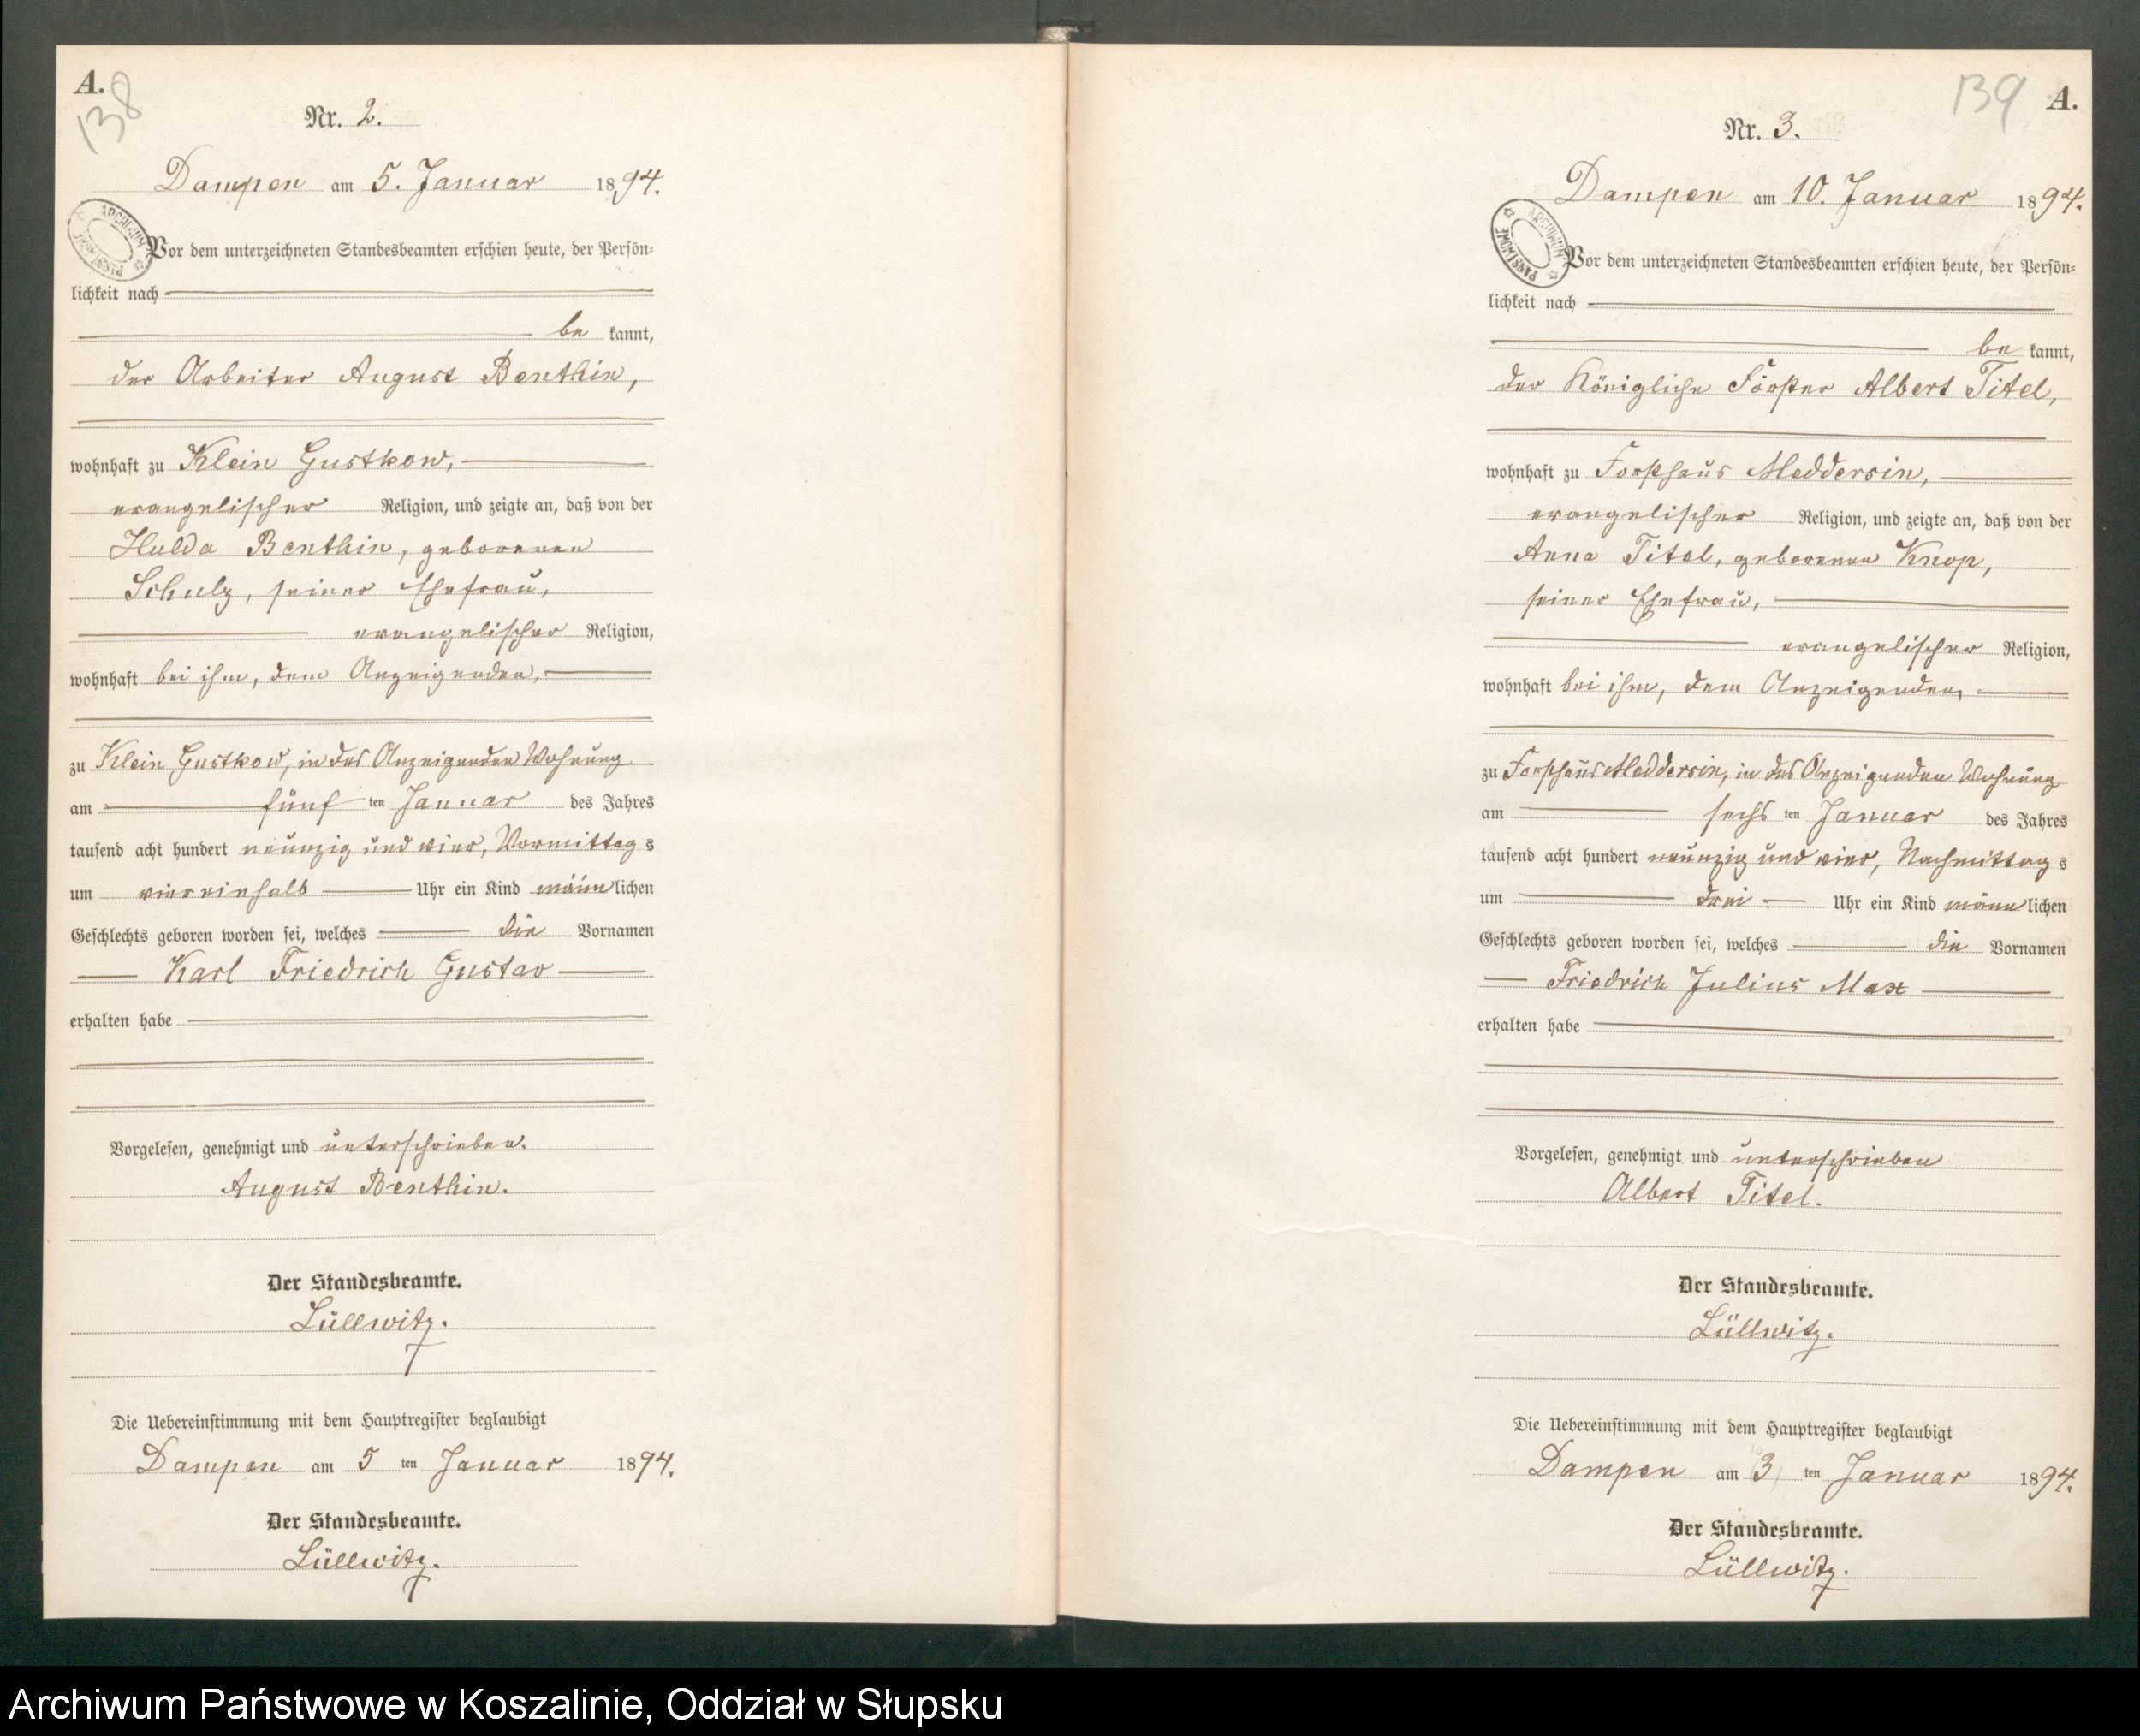 A.
138
Nr. 2.
Dampen am 5. Januar 1894.
ARCHIWUM PAŃSTWOWE
Vor dem unterzeichneten Standesbeamten erschien heute, der Persön-
lichkeit nach
be kannt,
der Arbeiter August Benthin,
wohnhaft zu Klein Gustkow,
evangelischer Religion, und zeigte an, daß von der
Hulda Benthin, geborenen
Schulz, seiner Ehefrau,
evangelischer Religion,
wohnhaft bei ihm, dem Anzeigenden,
zu Klein Gustkow, in des Anzeigenden Wohnung
am fünf ten Januar des Jahres
tausend acht hundert neunzig und vier, Vormittag s
um viereinhalb Uhr ein Kind männ lichen
Geschlechts geboren worden sei, welches die Vornamen
Karl Friedrich Gustav
erhalten habe
Vorgelesen, genehmigt und unterschrieben.
August Benthin.
Der Standesbeamte.
Lüllwitz.
Die Uebereinstimmung mit dem Hauptregister beglaubigt
Dampen am 5 ten Januar 1894.
Der Standesbeamte.
Lüllwitz.
139 A.
Nr. 3.
Dampen am 10. Januar 1894.
ARCHIWUM PAŃSTWOWE
Vor dem unterzeichneten Standesbeamten erschien heute, der Persön-
lichkeit nach
be kannt,
der Königliche Förster Albert Titel,
wohnhaft zu Forsthaus Meddersin,
evangelischer Religion, und zeigte an, daß von der
Anna Titel, geborenen Knop,
seiner Ehefrau,
evangelischer Religion,
wohnhaft bei ihm, dem Anzeigenden,
zu Forsthaus Meddersin, in des Anzeigenden Wohnung
am sechs ten Januar des Jahres
tausend acht hundert neunzig und vier, Nachmittag s
um drei Uhr ein Kind männ lichen
Geschlechts geboren worden sei, welches die Vornamen
Friedrich Julius Max
erhalten habe
Vorgelesen, genehmigt und unterschrieben
Albert Titel.
Der Standesbeamte.
Lüllwitz.
Die Uebereinstimmung mit dem Hauptregister beglaubigt
Dampen am 3 ten Januar 1894.
Der Standesbeamte.
Lüllwitz.
Archiwum Państwowe w Koszalinie, Oddział w Słupsku